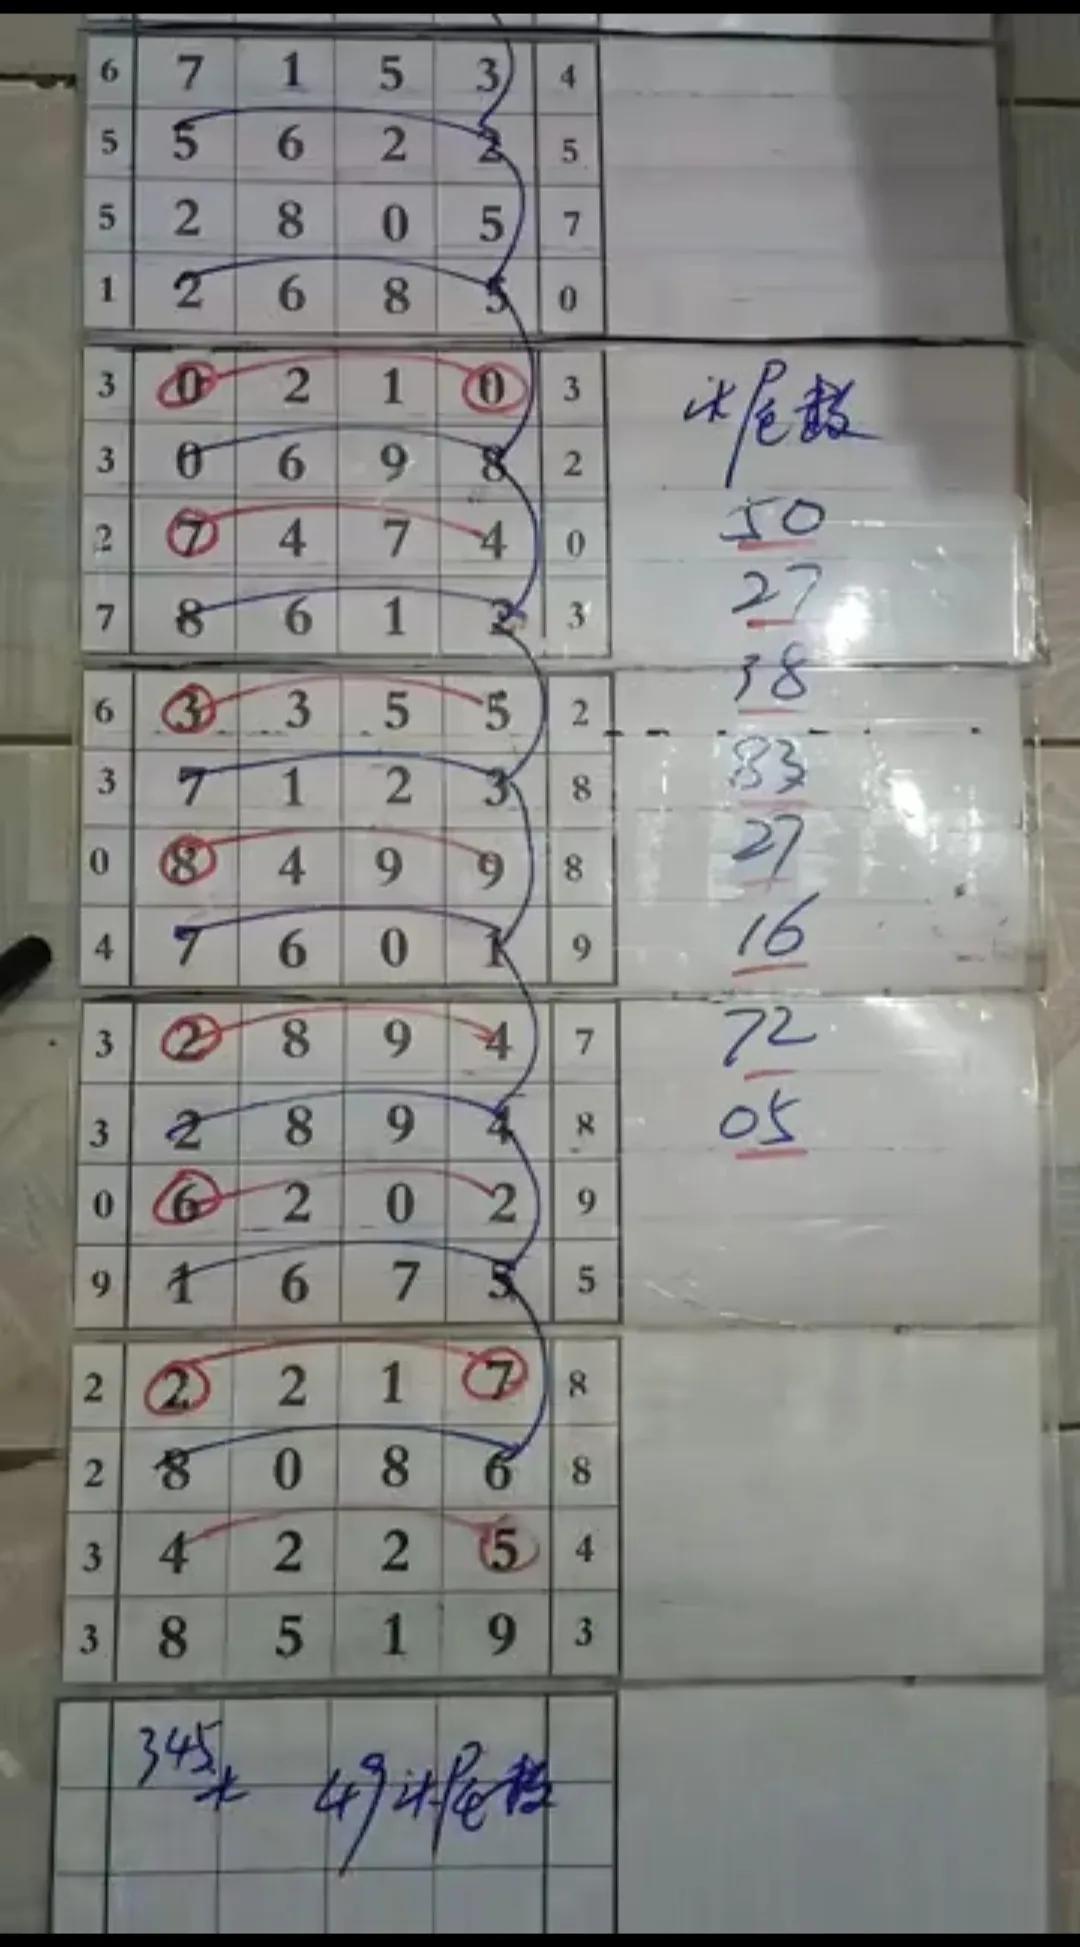 6 7 1 5 3 4
5 5 6 2 2 5
5 2 8 0 5 7
1 2 6 8 5 0
3 0 2 1 0 3 计尾数
3 0 6 9 8 2
2 7 4 7 4 0 50
7 8 6 1 2 3 27
6 3 3 5 5 2 38
3 7 1 2 3 8 83
0 8 4 9 9 8 27
4 7 6 0 1 9 16
3 2 8 9 4 7 72
3 2 8 9 4 8 05
0 6 2 0 2 9
9 1 6 7 5 5
2 2 2 1 7 8
2 8 0 8 6 8
3 4 2 2 5 4
3 8 5 1 9 3
345 49计尾数